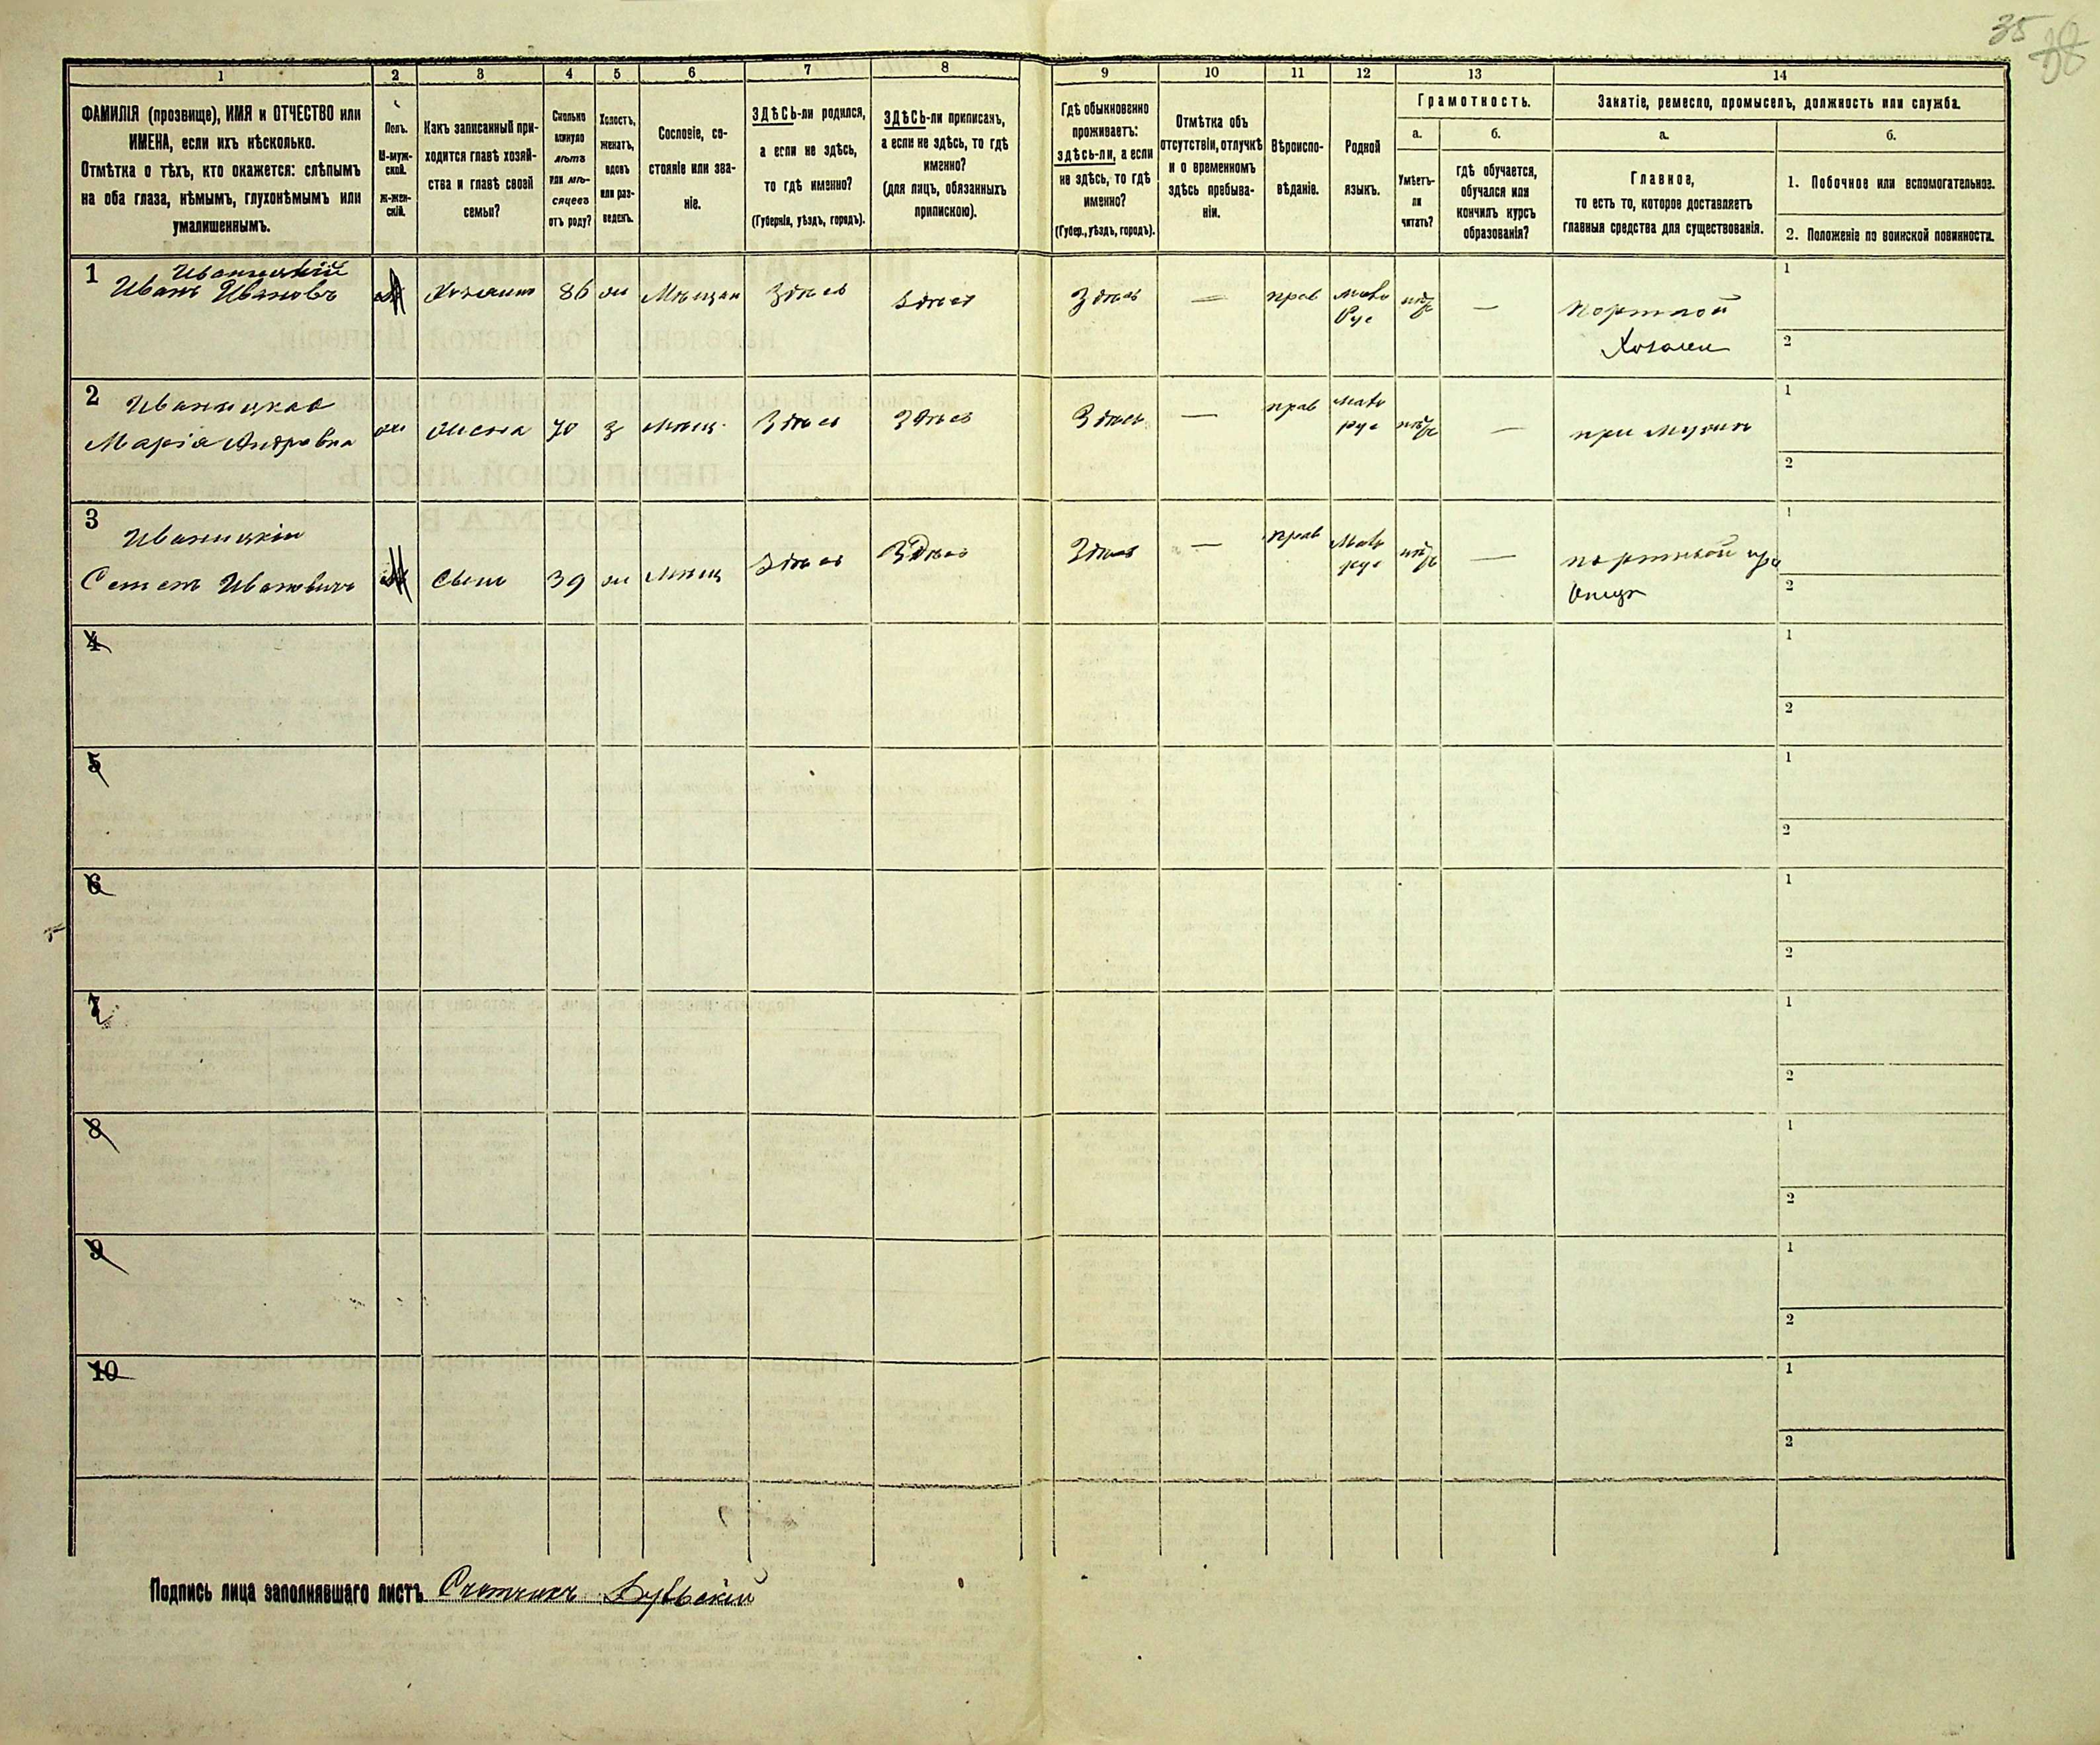 35
38
1
2
3
4
5
6
7
8
9
10
11
12
13
14
ФАМИЛІЯ (прозвище), ИМЯ и ОТЧЕСТВО или
ИМЕНА, если ихъ нѣсколько.
Отмѣтка о тѣхъ, кто окажется: слѣпымъ
на оба глаза, нѣмымъ, глухонѣмымъ или
умалишеннымъ.
Полъ.
М-муж-
ской.
Ж-жен-
скій.
Какъ записанный при-
ходится главѣ хозяй-
ства и главѣ своей
семьи?
Сколько
минуло
лѣтъ
или мѣ-
сяцевъ
отъ роду?
Холостъ,
женатъ,
вдовъ
или раз-
веденъ.
Сословіе, со-
стояніе или зва-
ніе.
ЗДѢСЬ-ли родился,
а если не здѣсь,
то гдѣ именно?
(Губернія, уѣздъ, городъ).
ЗДѢСЬ-ли приписанъ,
а если не здѣсь, то гдѣ
именно?
(для лицъ, обязанныхъ
припискою).
Гдѣ обыкновенно
проживаетъ:
здѣсь-ли, а если
не здѣсь, то гдѣ
именно?
(Губер., уѣздъ, городъ).
Отмѣтка объ
отсутствіи, отлучкѣ
и о временномъ
здѣсь пребыва-
ніи.
Вѣроиспо-
вѣданіе.
Родной
языкъ.
Грамотность.
а.
б.
Умѣетъ-
ли
читать?
гдѣ обучается,
обучался или
кончилъ курсъ
образованія?
Занятіе, ремесло, промыселъ, должность или служба.
а.
б.
Главное,
то есть то, которое доставляетъ
главныя средства для существованія.
1. Побочное или вспомогательное.
2. Положеніе по воинской повинности.
1
Иваницкій
Иванъ Ивановъ
М
Хозяинъ
86
ж
Мѣщан
Здѣсь
Здѣсь
Здѣсь
—
прав
мало
Рус
нѣт
—
портной
Хозяин
1
2
2
Иваницкая
Марія Андровна
ж
жена
70
з
мѣщ.
Здѣсь
Здѣсь
Здѣсь
—
прав
мало
рус
нѣт
—
при мужѣ
1
2
3
Иваницкій
Семенъ Ивановичъ
М
Сынъ
39
ж
мѣщ
Здѣсь
Здѣсь
Здѣсь
—
прав
Мало
рус
нѣт
—
портной при
Отцѣ
1
2
4
1
2
5
1
2
6
1
2
7
1
2
8
1
2
9
1
2
10
1
2
Подпись лица заполнявшаго листъ Счетчикъ